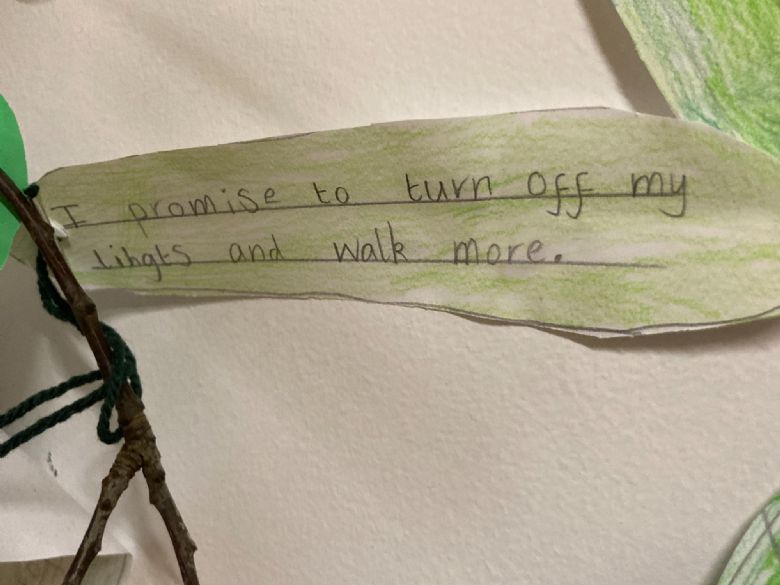 I promise to turn off my
lihgts and walk more.